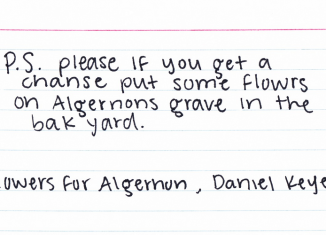 P.S. please if you get a
chanse put some flowrs
on Algernons grave in the
bak yard.
owers for Algernon, Daniel Keye